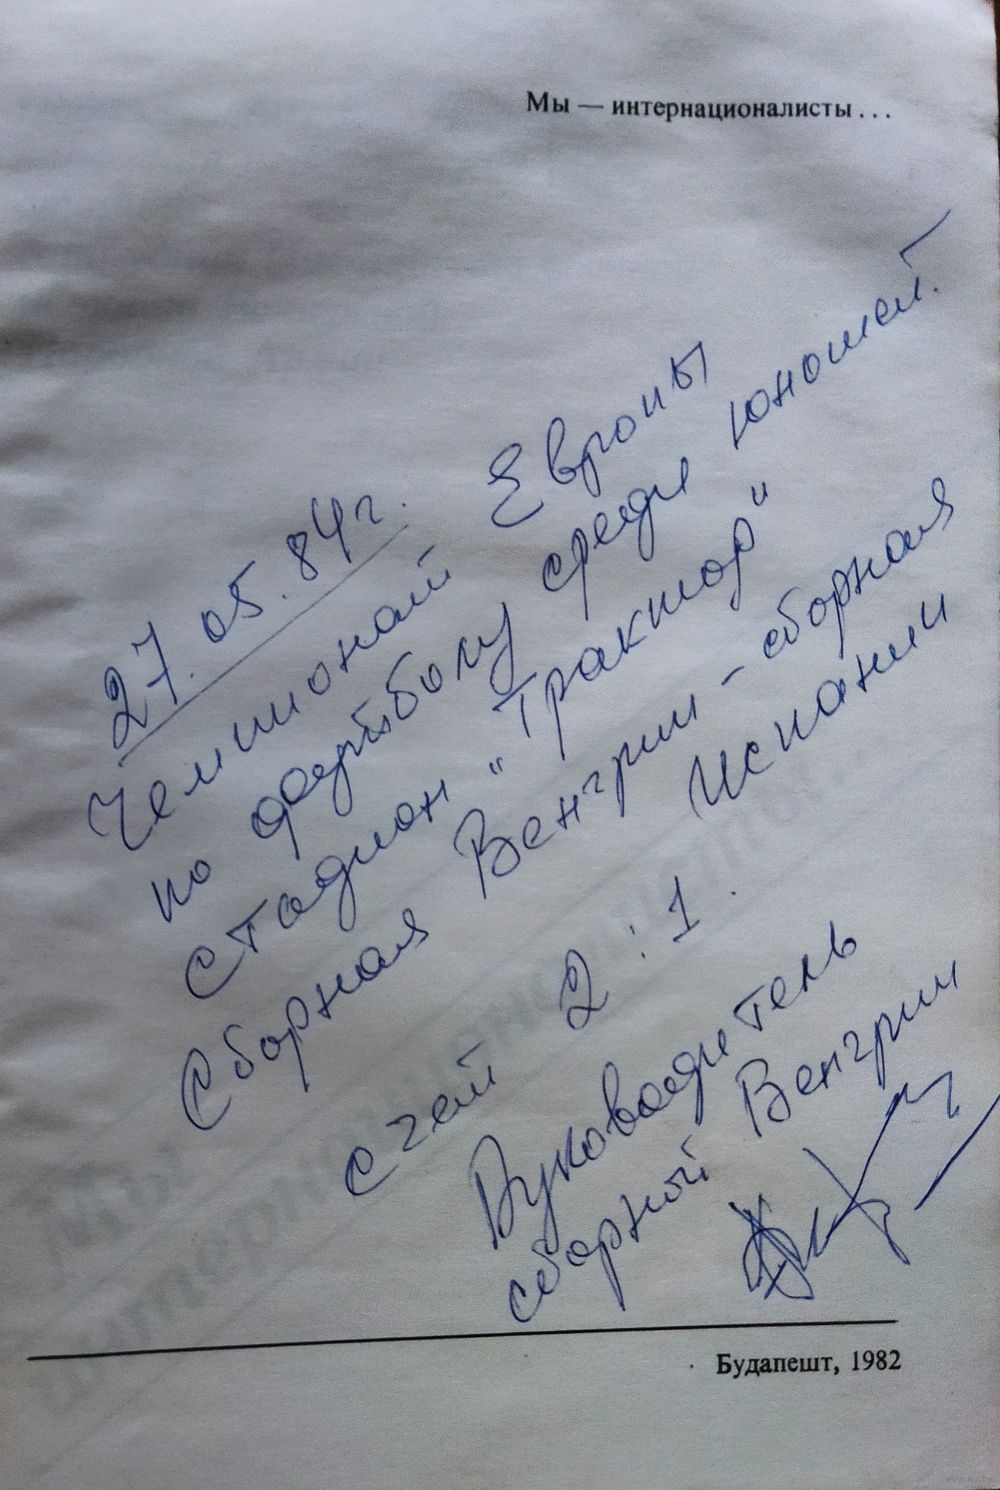 Мы — интернационалисты ...
27.05.84г.
Чемпионат Европы
по футболу среди юношей.
Стадион "Трактор"
Сборная Венгрии - сборная
Испании
счет 2:1.
Руководитель
сборной Венгрии
Будапешт, 1982